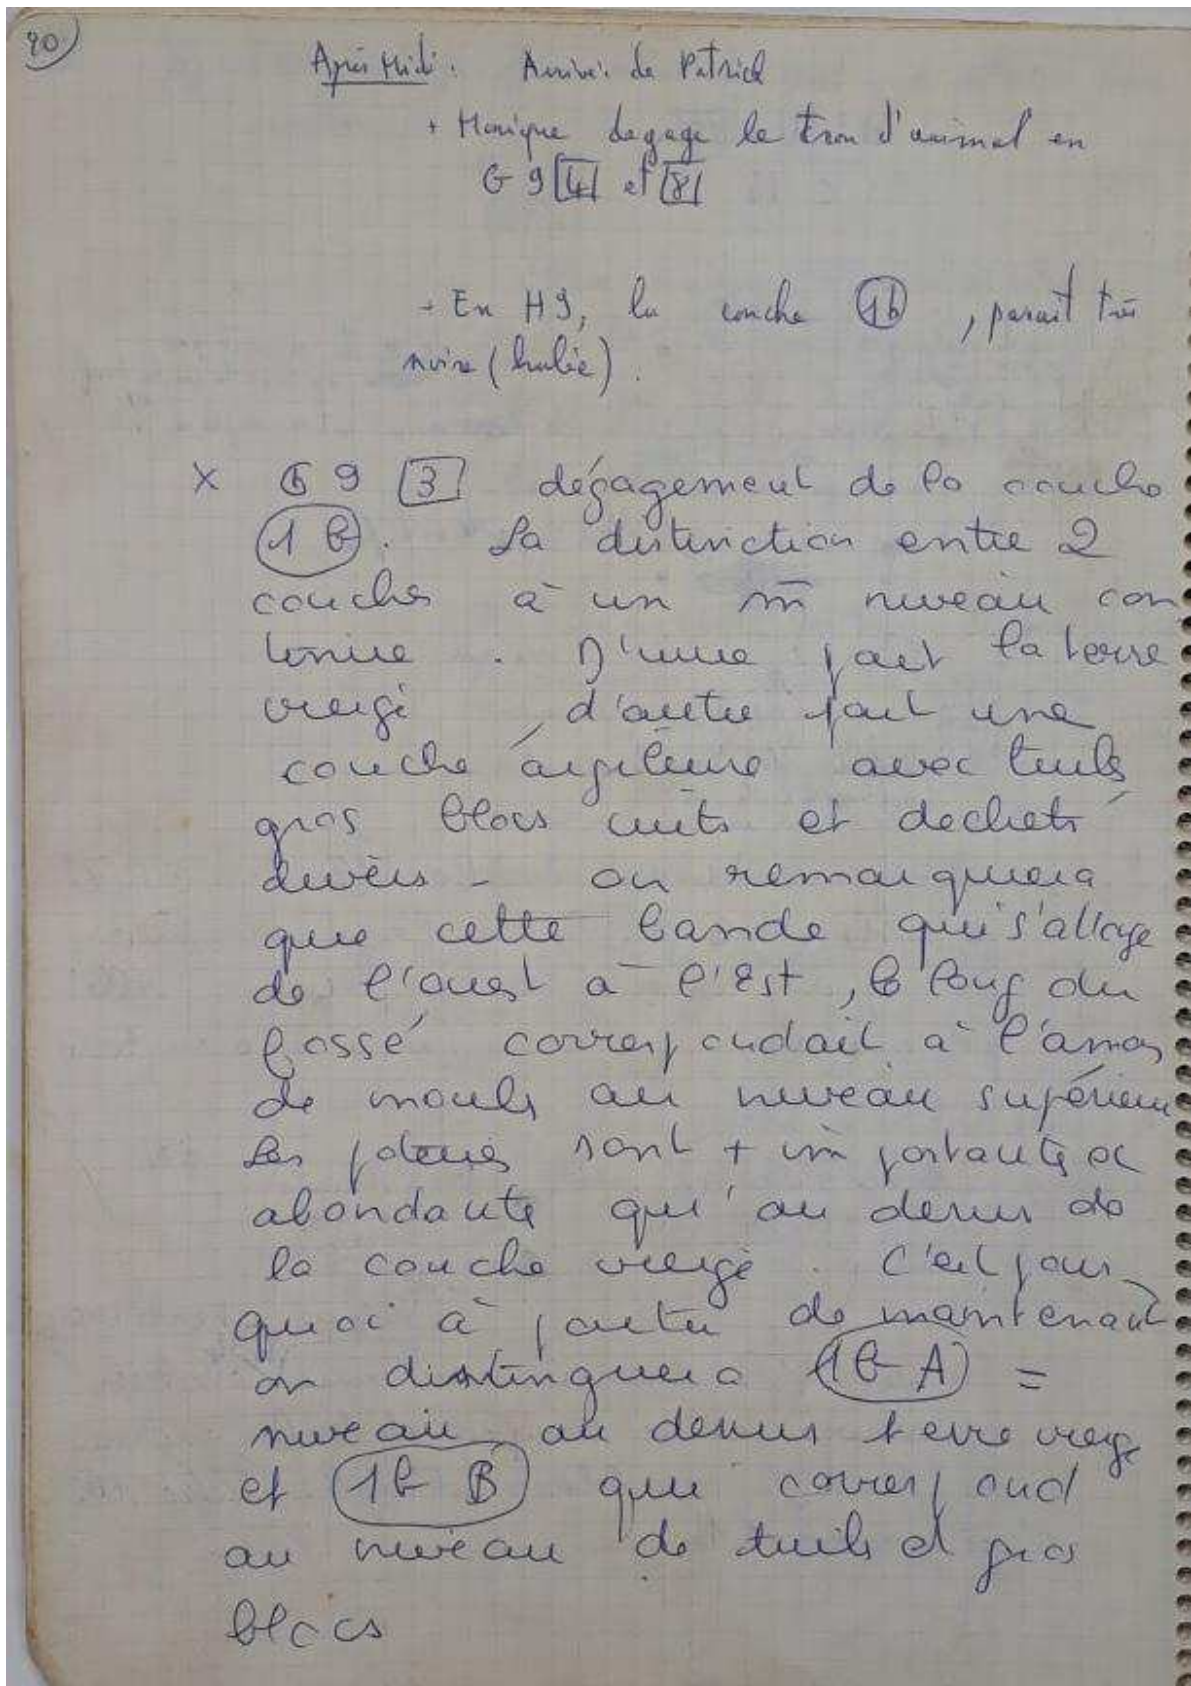 90
Après Midi : Arrivée de Patrick
+ Monique dégage le trou d'animal en
G9 4 et 8
- En H9, la couche 1b, paraît très
noire (brulée).
X G9 3 dégagement de la couche
1b. La distinction entre 2
couches à un m̄ niveau con
tinue. D'une part la terre
vierge, d'autre part une
couche argileuse avec tuiles
gros blocs cuits et dechets
divers - on remarquera
que cette bande qui s'allonge
de l'ouest à l'Est, le long du
fossé correspondait à l'amas
de moules au niveau supérieur
Les poteries sont + importantes et
abondantes qu'au dessus de
la couche vierge. C'est pour
quoi à partir de maintenant
on distinguera 1b A =
niveau au dessus terre vierge
et 1b B qui correspond
au niveau de tuiles et gros
blocs